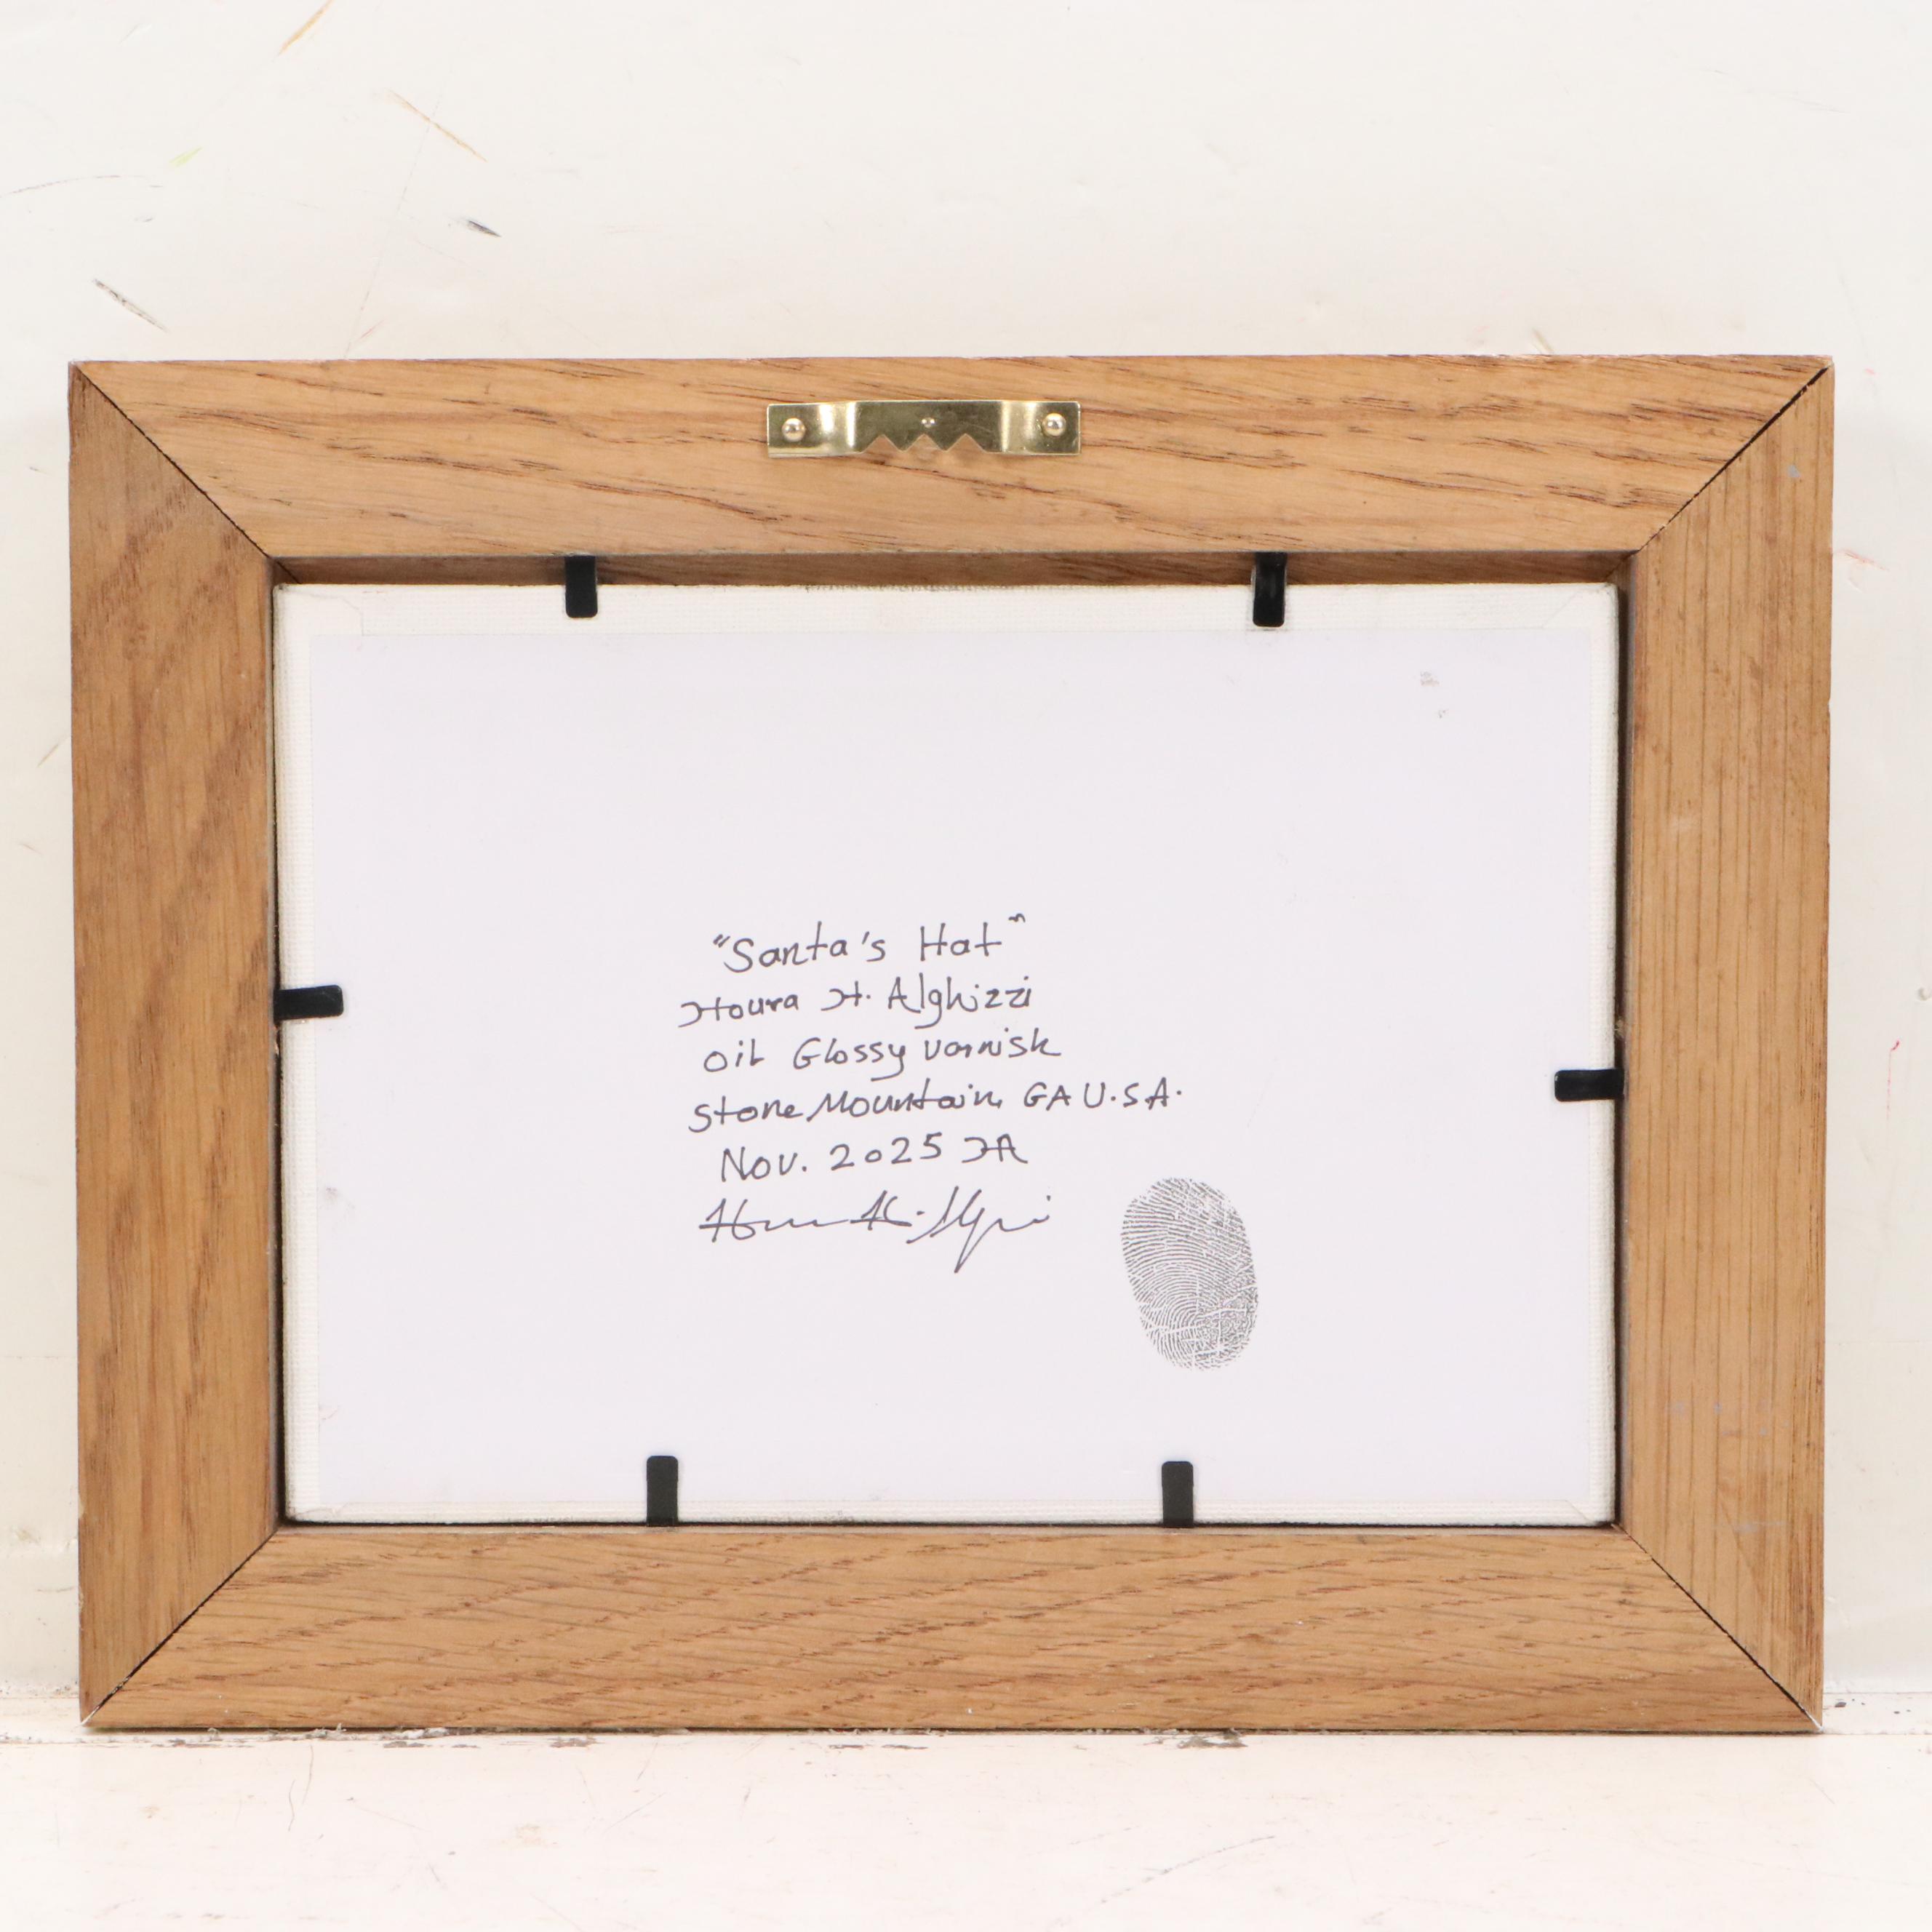 "Santa's Hat"
Houra H. Alghizzi
Oil Glossy varnish
Stone Mountain, GA U.S.A.
Nov. 2025 HA